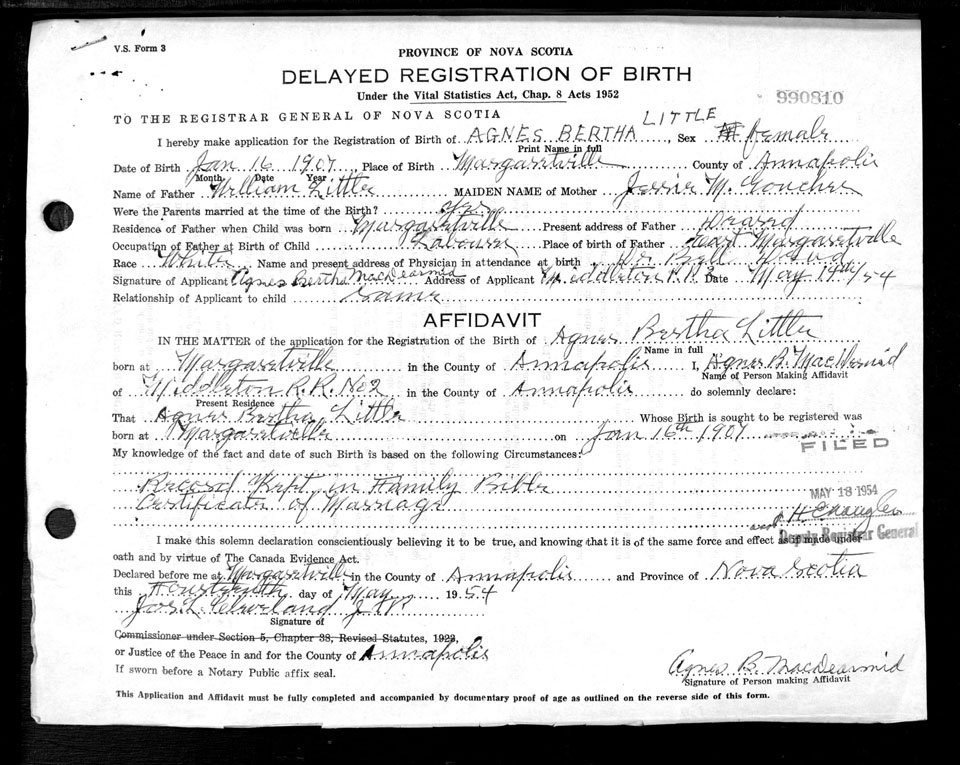 V.S. Form 3
PROVINCE OF NOVA SCOTIA
DELAYED REGISTRATION OF BIRTH
Under the Vital Statistics Act, Chap. 8 Acts 1952
990810
TO THE REGISTRAR GENERAL OF NOVA SCOTIA
I hereby make application for the Registration of Birth of AGNES BERTHA LITTLE, Sex female
Print Name in full
Date of Birth Jan 16 1907 Place of Birth Margaretville County of Annapolis
Month Date Year
Name of Father William Little MAIDEN NAME of Mother Jessie M. Goucher
Were the Parents married at the time of the Birth? yes
Residence of Father when Child was born Margaretville Present address of Father
Occupation of Father at Birth of Child Labourer Place of birth of Father East Margaretville
Race White Name and present address of Physician in attendance at birth Dr. Bell
Signature of Applicant Agnes Bertha MacDearmid Address of Applicant Middleton R.R.2 Date May 14th/54
Relationship of Applicant to child Same
AFFIDAVIT
IN THE MATTER of the application for the Registration of the Birth of Agnes Bertha Little
Name in full
born at Margaretville in the County of Annapolis I, Agnes B. MacDearmid
Name of Person Making Affidavit
of Middleton R.R. No 2 in the County of Annapolis do solemnly declare:
Present Residence
That Agnes Bertha Little Whose Birth is sought to be registered was
born at Margaretville on Jan 16th 1907
FILED
My knowledge of the fact and date of such Birth is based on the following Circumstances:
Record Kept in Family Bible
MAY 18 1954
Certificate of Marriage
Deputy Registrar General
I make this solemn declaration conscientiously believing it to be true, and knowing that it is of the same force and effect as if made under
oath and by virtue of The Canada Evidence Act.
Declared before me at Margaretville in the County of Annapolis and Province of Nova Scotia
this Fourteenth day of May 1954
Jos. L. Cleveland J.P.
Signature of
Commissioner under Section 5, Chapter 38, Revised Statutes, 1923,
or Justice of the Peace in and for the County of Annapolis
If sworn before a Notary Public affix seal.
Agnes B. MacDearmid
Signature of Person making Affidavit
This Application and Affidavit must be fully completed and accompanied by documentary proof of age as outlined on the reverse side of this form.